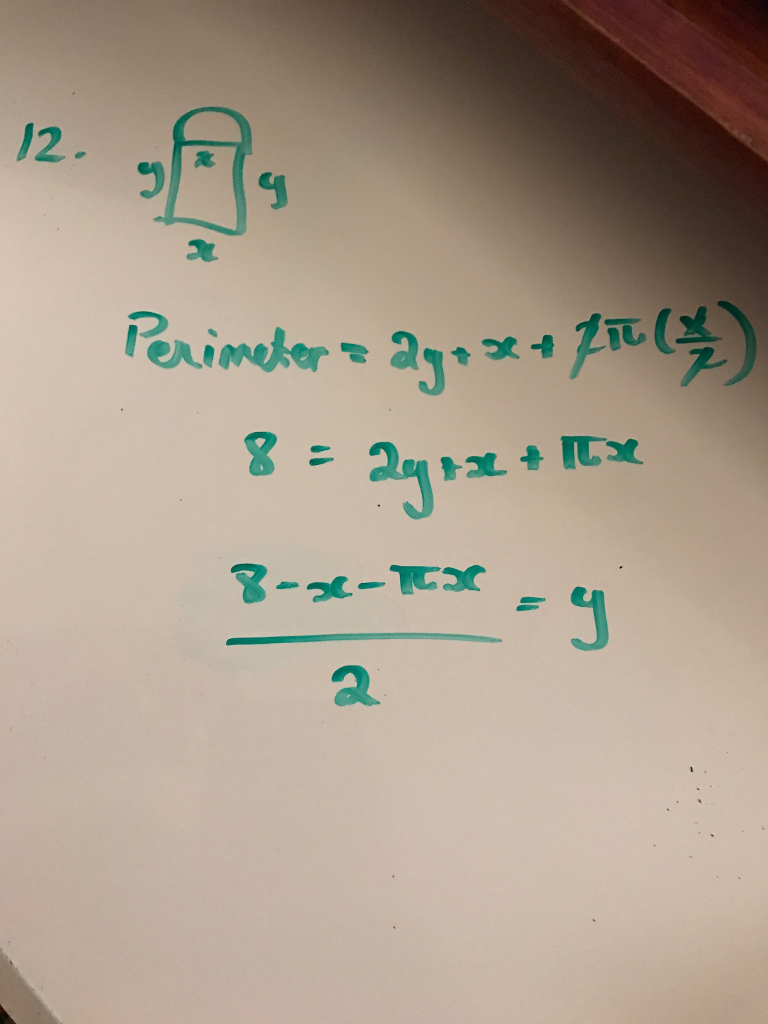 12.
x
y y
x
Perimeter = 2y + x + 2π(x/2)
8 = 2y + x + πx
8 - x - πx
= y
2